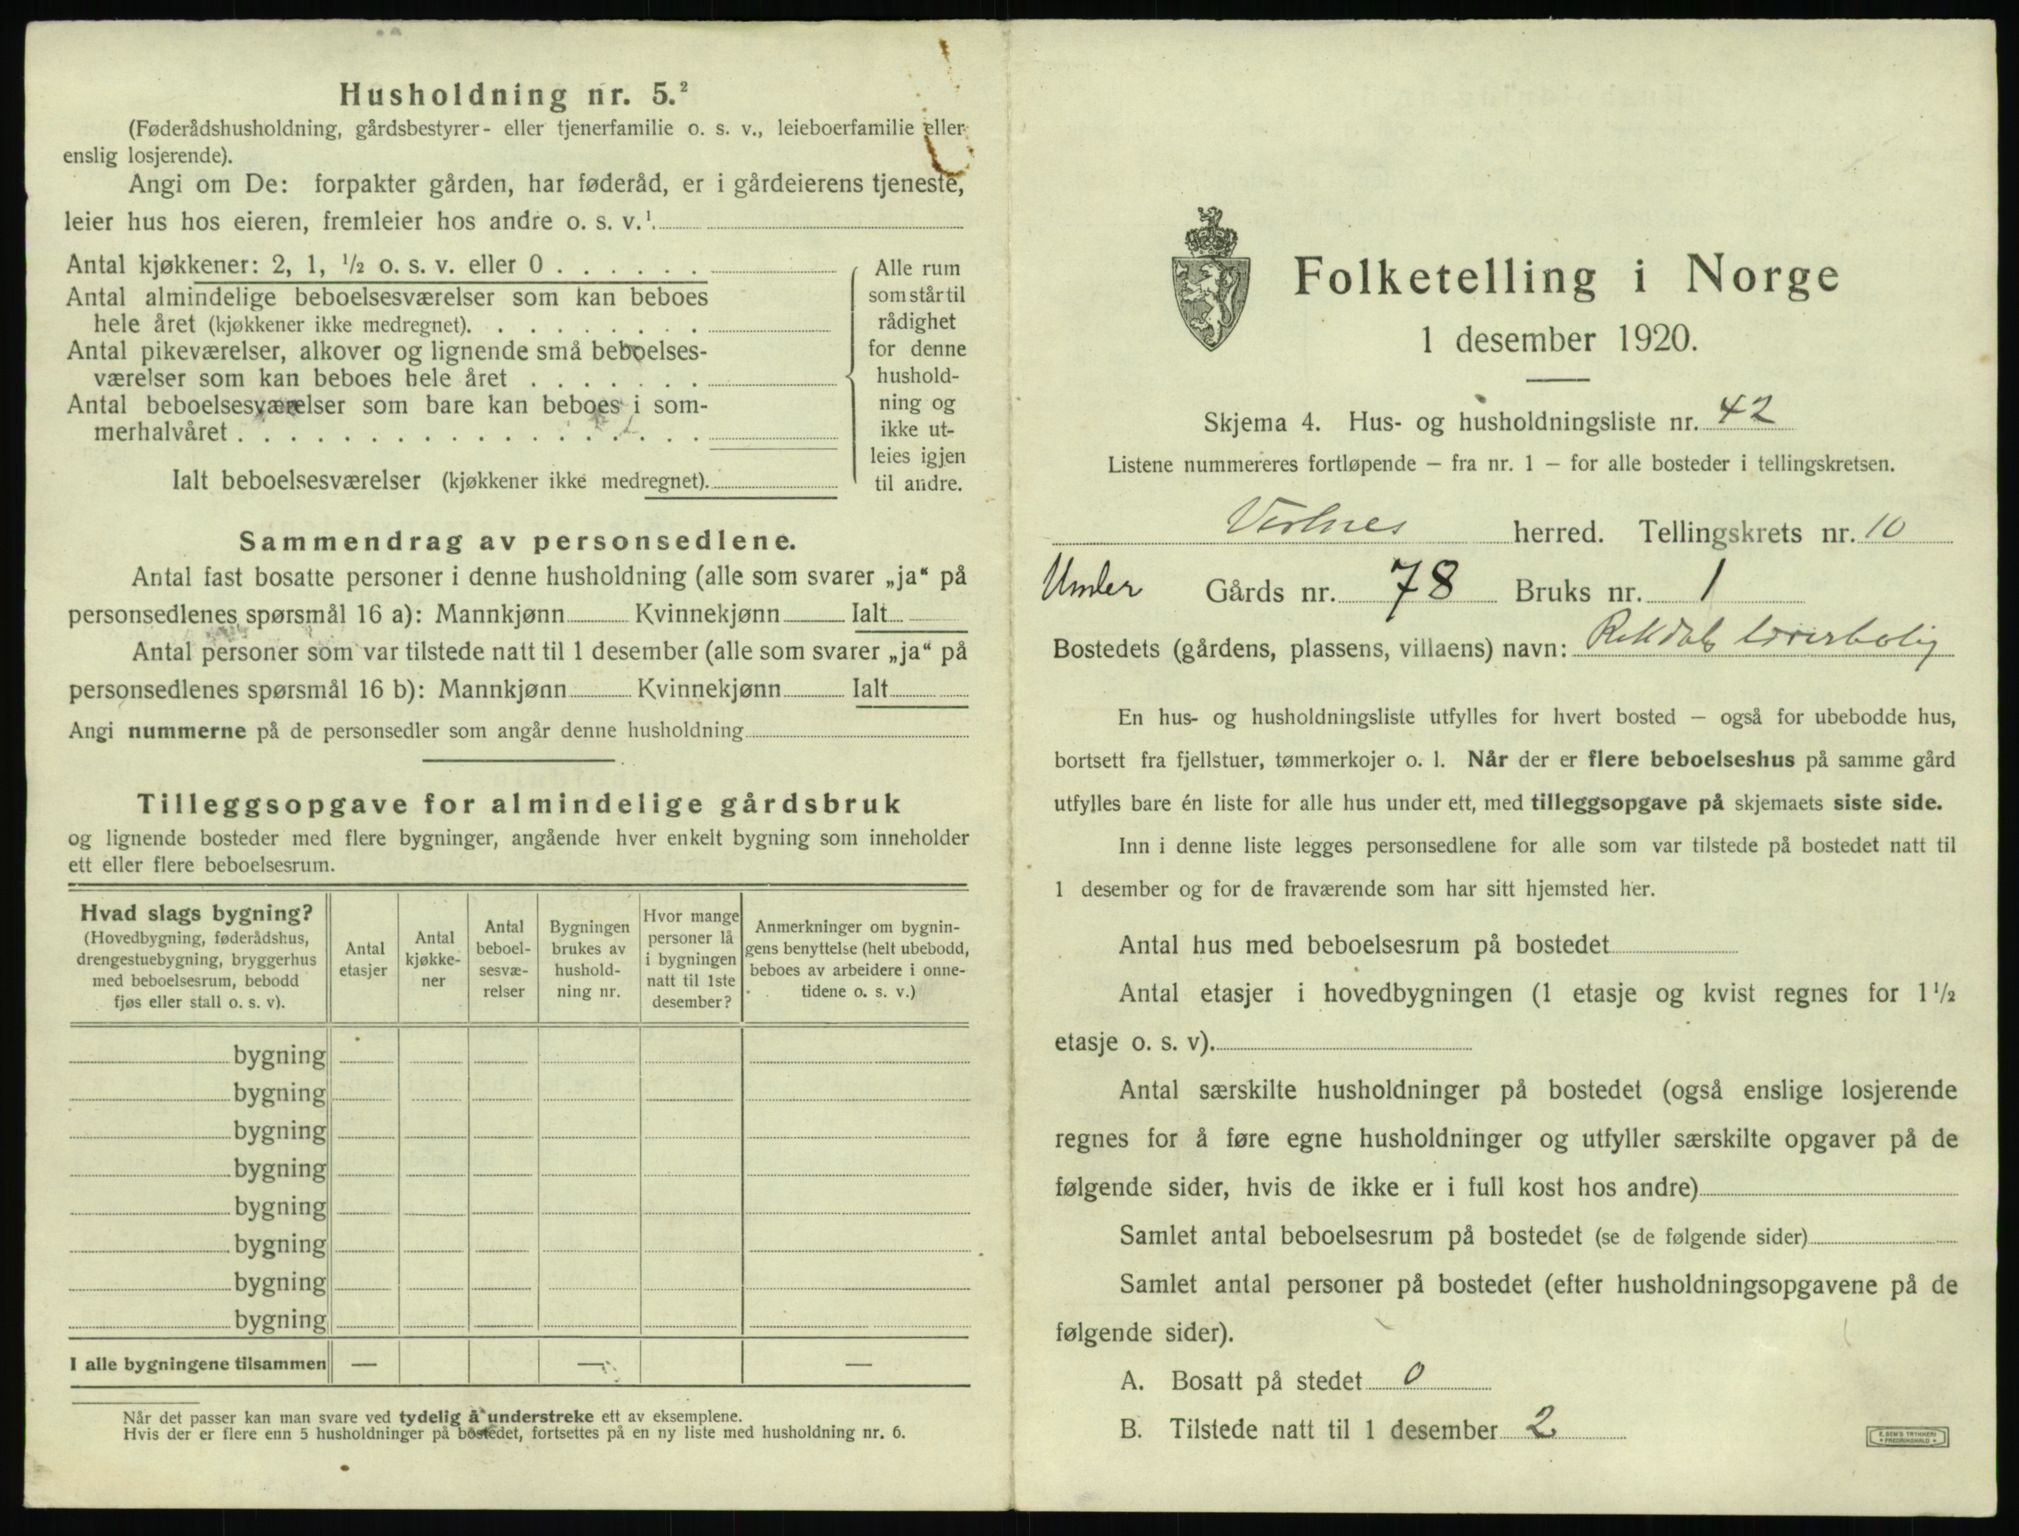 Husholdning nr. 5.²
(Føderådshusholdning, gårdsbestyrer- eller tjenerfamilie o. s. v., leieboerfamilie eller
enslig losjerende).
Angi om De: forpakter gården, har føderåd, er i gårdeierens tjeneste,
leier hus hos eieren, fremleier hos andre o. s. v.¹
Antal kjøkkener: 2, 1, ½ o. s. v. eller 0 . . . . . .
Antal almindelige beboelsesværelser som kan beboes
hele året (kjøkkener ikke medregnet). . . . . . . . .
Antal pikeværelser, alkover og lignende små beboelses-
værelser som kan beboes hele året . . . . . . .
Antal beboelsesværelser som bare kan beboes i som-
merhalvåret . . . . . . . . . . . . . . . . . .
Ialt beboelsesværelser (kjøkkener ikke medregnet).
Alle rum
som står til
rådighet
for denne
hushold-
ning og
ikke ut-
leies igjen
til andre.
Sammendrag av personsedlene.
Antal fast bosatte personer i denne husholdning (alle som svarer „ja“ på
personsedlenes spørsmål 16 a): Mannkjønn Kvinnekjønn Ialt
Antal personer som var tilstede natt til 1 desember (alle som svarer „ja“ på
personsedlenes spørsmål 16 b): Mannkjønn Kvinnekjønn Ialt
Angi nummerne på de personsedler som angår denne husholdning
Tilleggsopgave for almindelige gårdsbruk
og lignende bosteder med flere bygninger, angående hver enkelt bygning som inneholder
ett eller flere beboelsesrum.
Hvad slags bygning?
(Hovedbygning, føderådshus,
drengestuebygning, bryggerhus
med beboelsesrum, bebodd
fjøs eller stall o. s. v).
Antal
etasjer
Antal
kjøkke-
ner
Antal
beboel-
sesvæ-
relser
Bygningen
brukes av
hushold-
ning nr.
Hvor mange
personer lå
i bygningen
natt til 1ste
desember?
Anmerkninger om bygnin-
gens benyttelse (helt ubebodd,
beboes av arbeidere i onne-
tidene o. s. v.)
bygning
bygning
bygning
bygning
bygning
bygning
bygning
bygning
I alle bygningene tilsammen — — —
Når det passer kan man svare ved tydelig å understreke ett av eksemplene.
Hvis der er flere enn 5 husholdninger på bostedet, fortsettes på en ny liste med husholdning nr. 6.
Folketelling i Norge
1 desember 1920.
Skjema 4. Hus- og husholdningsliste nr. 42
Listene nummereres fortløpende – fra nr. 1 – for alle bosteder i tellingskretsen.
Vestnes herred. Tellingskrets nr. 10
Under Gårds nr. 78 Bruks nr. 1
Bostedets (gårdens, plassens, villaens) navn: Rekdals lærerbolig
En hus- og husholdningsliste utfylles for hvert bosted – også for ubebodde hus,
bortsett fra fjellstuer, tømmerkojer o. l. Når der er flere beboelseshus på samme gård
utfylles bare én liste for alle hus under ett, med tilleggsopgave på skjemaets siste side.
Inn i denne liste legges personsedlene for alle som var tilstede på bostedet natt til
1 desember og for de fraværende som har sitt hjemsted her.
Antal hus med beboelsesrum på bostedet
Antal etasjer i hovedbygningen (1 etasje og kvist regnes for 1½
etasje o. s. v).
Antal særskilte husholdninger på bostedet (også enslige losjerende
regnes for å føre egne husholdninger og utfyller særskilte opgaver på de
følgende sider, hvis de ikke er i full kost hos andre)
Samlet antal beboelsesrum på bostedet (se de følgende sider)
Samlet antal personer på bostedet (efter husholdningsopgavene på de
følgende sider).
A. Bosatt på stedet 0
B. Tilstede natt til 1 desember 2
E. SEM'S TRYKKERI
FREDRIKSHALD